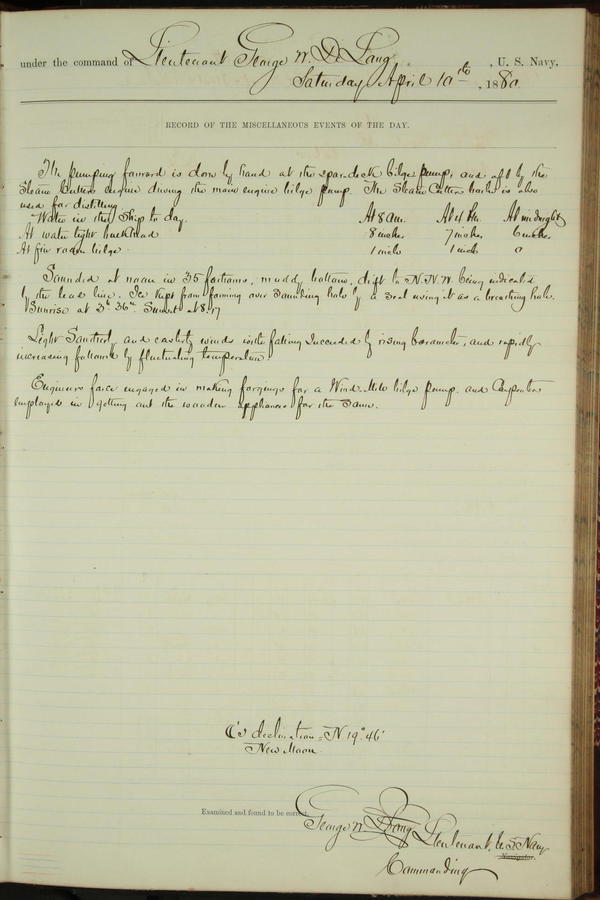 under the command of Lieutenant George W. De Long, U. S. Navy,
Saturday April 10th, 1880
RECORD OF THE MISCELLANEOUS EVENTS OF THE DAY.
The pumping forward is done by hand at the spar-deck bilge pump, and aft by the
Steam Cutters engine driving the main engine bilge pump. The Steam Cutter boiler is also
used for distilling.
Water in the Ship to day. At 8 am. At 4 Pm. At midnight
At water tight bulkhead 8 inches 7 inches 6 inches
At fire room bilge 1 inch 1 inch 0
Sounded at noon in 35 fathoms, muddy bottom, drift to N.N.W. being indicated
by the lead line. Ice kept from forming over sounding hole by a seal using it as a breathing hole.
Sunrise at 3h 36m. Sunset at 8.17
Light Southerly and easterly winds with falling succeeded by rising barometer, and rapidly
increasing followed by fluctuating temperature.
Engineers force engaged in making forgings for a Wind-Mill bilge pump. and Carpenter
employed in getting out the wooden appliances for the same.
☾'s declination = N 19° 46'
New Moon
Examined and found to be correct.
George W. De Long Lieutenant, U.S. Navy
Navigator.
Commanding